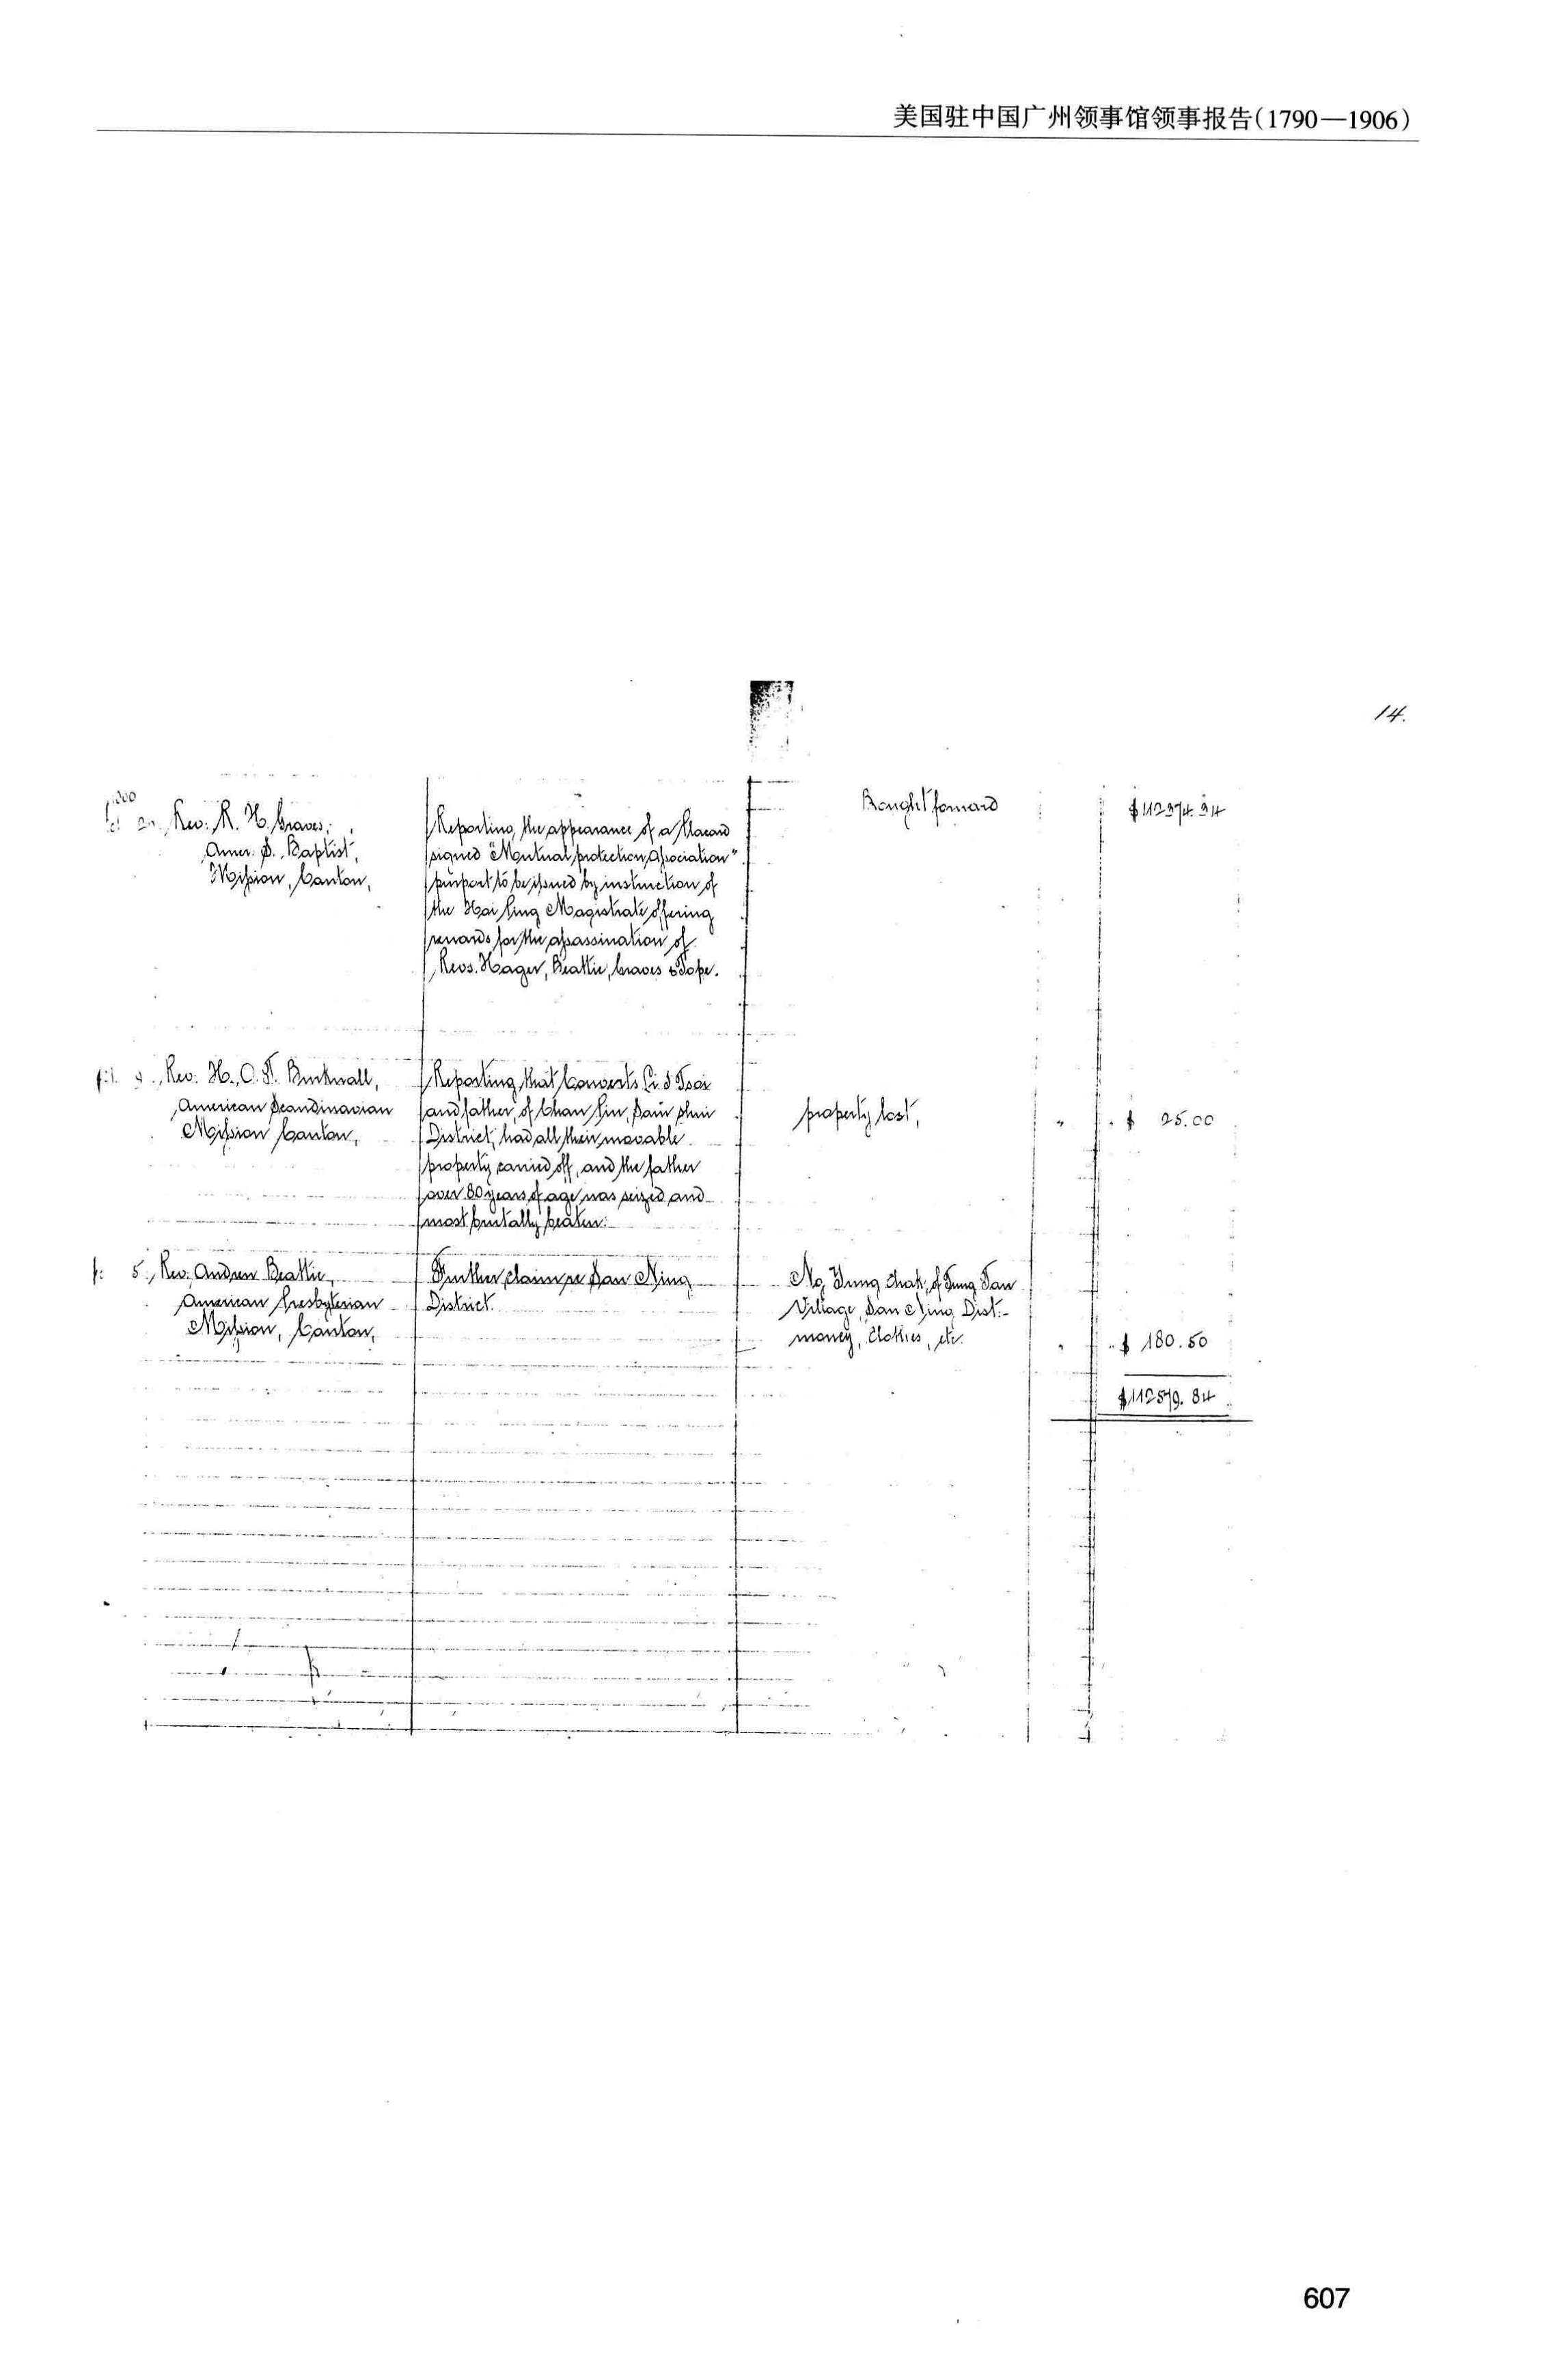 美国驻中国广州领事馆领事报告(1790—1906)
14.
Rev. R. H. Graves,
Amer. S. Baptist,
Mission, Canton,
Reporting the appearance of a Placard
signed "Mutual protection Association"
purport to be issued by instruction of
the Hoi Ping Magistrate offering
rewards for the assassination of
Revs. Hager, Beattie, Graves & Pope.
Brought forward
$112374.34
Rev. H. O. T. Burkwall,
American Scandinavian
Mission Canton,
Reporting that Converts
and father of Chan
District, had all their movable
property carried off, and the father
over 80 years of age was seized and
most brutally beaten.
property lost,
" $ 25.00
5, Rev. Andrew Beattie,
American Presbyterian
Mission, Canton,
Further claim re San Ning
District.
Ng Tung Chak, of Tung Tan
Village, San Ning Dist:-
money, clothes, etc.
" $ 180.50
$112579.84
607